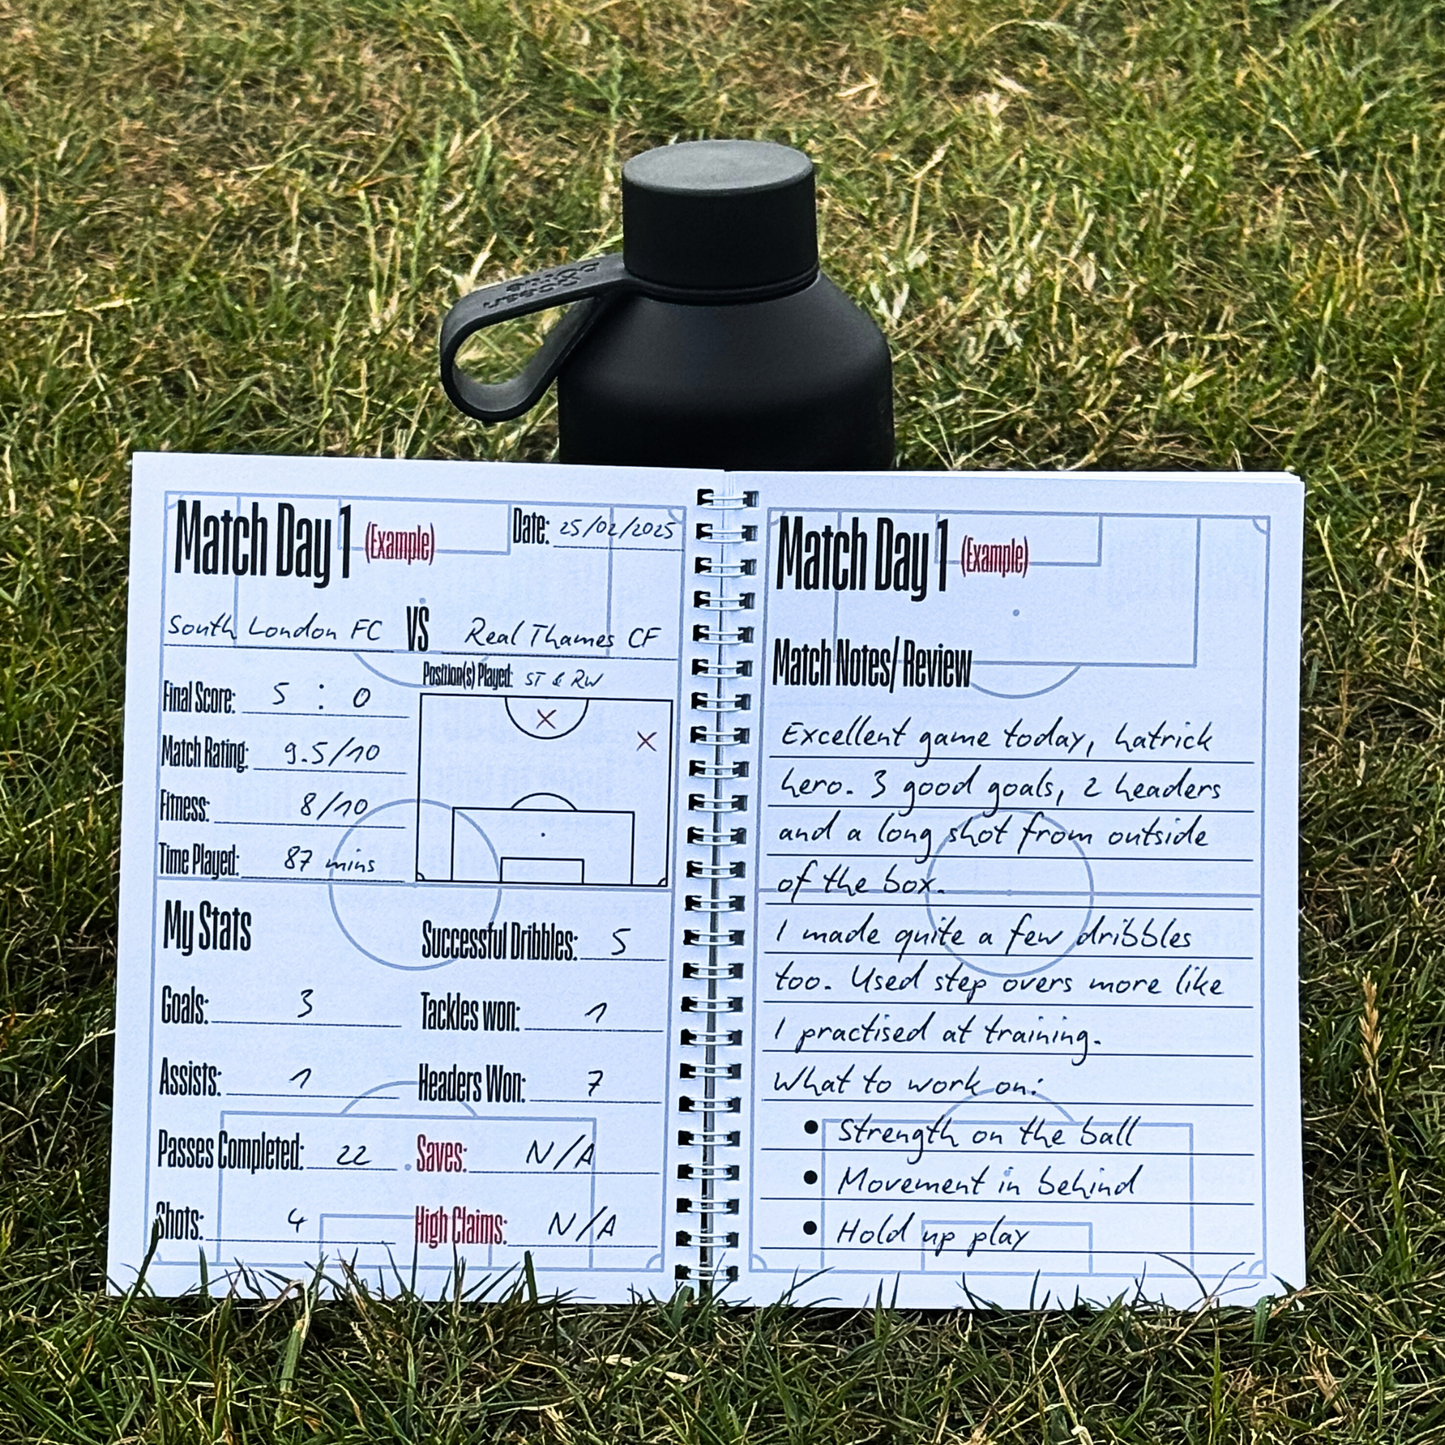 ocean
bottle
Match Day 1 (Example) Date: 25/02/2025
South London FC VS Real Thames CF
Position(s) Played: ST & RW
Final Score: 5 : 0
Match Rating: 9.5/10
Fitness: 8/10
Time Played: 87 mins
My Stats
Successful Dribbles: 5
Goals: 3
Tackles won: 1
Assists: 1
Headers Won: 7
Passes Completed: 22
Saves: N/A
Shots: 4
High Claims: N/A
Match Day 1 (Example)
Match Notes/ Review
Excellent game today, hatrick
hero. 3 good goals, 2 headers
and a long shot from outside
of the box.
I made quite a few dribbles
too. Used step overs more like
I practised at training.
What to work on:
• Strength on the ball
• Movement in behind
• Hold up play